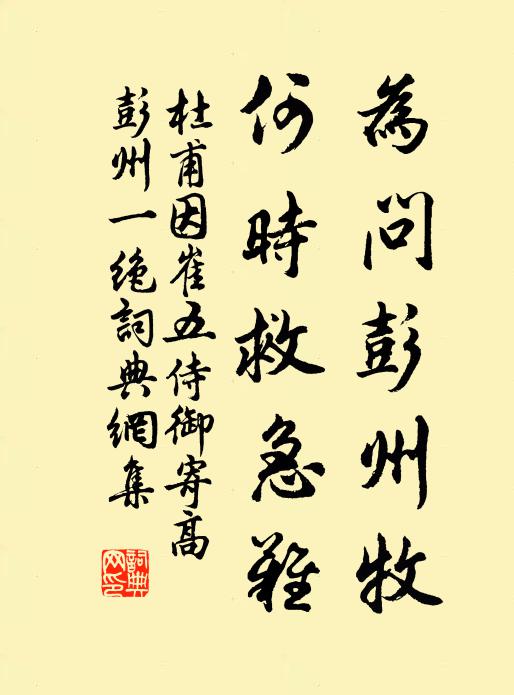 為問彭州牧
何時救急難
杜甫因崔五侍御寄高
彭州一絶詞典網集
詞典網印